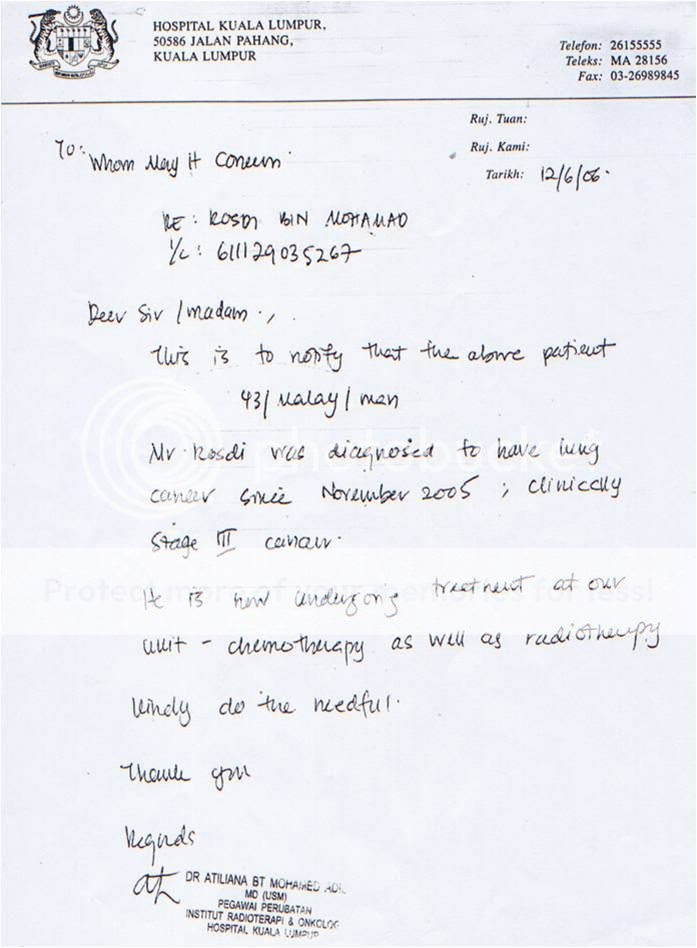 HOSPITAL KUALA LUMPUR,
50586 JALAN PAHANG,
KUALA LUMPUR
Telefon: 26155555
Teleks: MA 28156
Fax: 03-26989845
Ruj. Tuan:
Ruj. Kami:
Tarikh: 12/6/06.
To: Whom May It Concern.
RE: ROSDI BIN MOHAMAD
I/C: 611129035267
Dear Sir / madam.,
This is to notify that the above patient
43/ Malay / man
Mr. Rosdi was diagnosed to have lung
cancer since November 2005 ; clinically
stage III cancer.
It is now undergoing treatment at our
unit - chemotherapy as well as radiotherapy
Kindly do the needful.
Thank you
Regards
DR ATILIANA BT MOHAMED ADIL
MD (USM)
PEGAWAI PERUBATAN
INSTITUT RADIOTERAPI & ONKOLOGI
HOSPITAL KUALA LUMPUR
photobucket
Protect more of your memories for less!